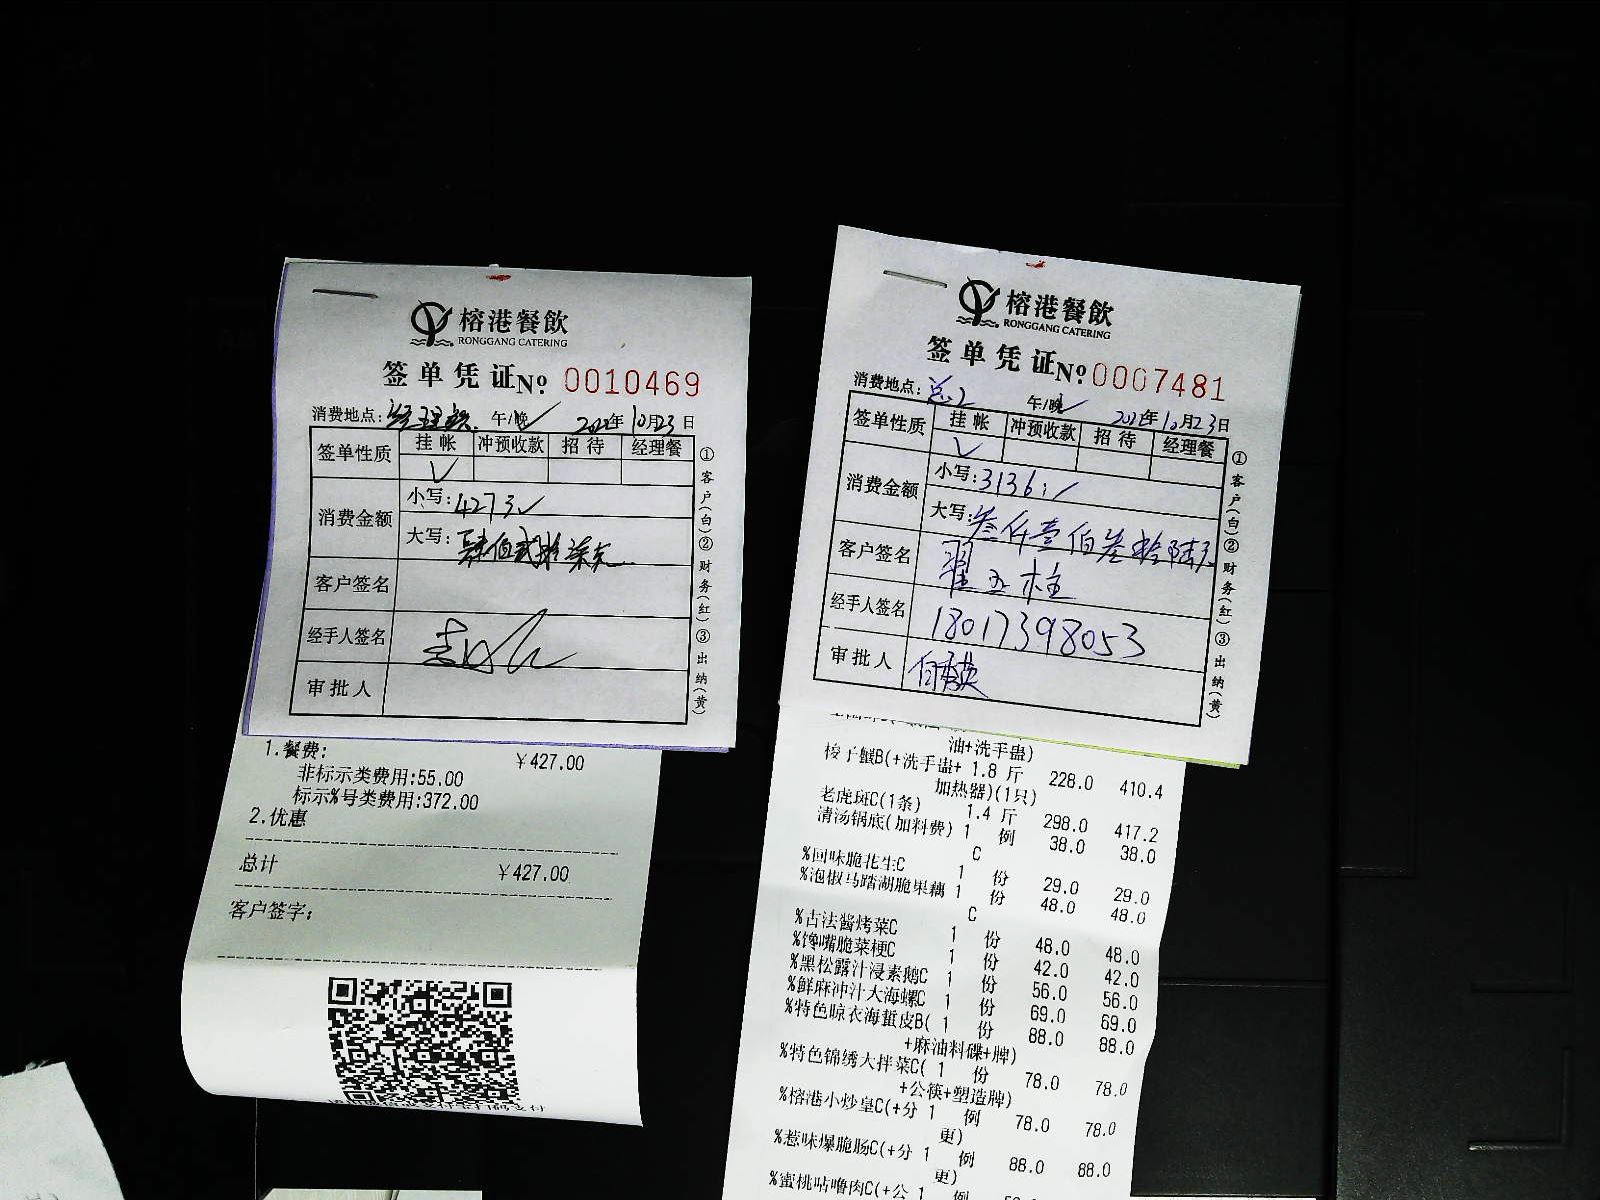 榕港餐飲
RONGGANG CATERING
签单凭证 No. 0010469
消费地点: 午/晚✓ 年10月23日
签单性质 挂帐 冲预收款 招待 经理餐
✓
消费金额 小写: 427
大写: 肆佰贰拾柒元
客户签名
经手人签名
审批人
①客户(白)②财务(红)③出纳(黄)
1.餐费: ¥427.00
非标示类费用:55.00
标示%号类费用:372.00
2.优惠
总计 ¥427.00
客户签字:
榕港餐飲
RONGGANG CATERING
签单凭证 No. 0007481
消费地点: 总2 午/晚✓ 年10月23日
签单性质 挂帐 冲预收款 招待 经理餐
✓
消费金额 小写: 3136
大写: 叁仟壹佰叁拾陆元
客户签名 翟玉柱
经手人签名 18017398053
审批人
①客户(白)②财务(红)③出纳(黄)
油+洗手盅)
梭子蟹B(+洗手盅+ 1.8 斤 228.0 410.4
加热器)(1只)
老虎斑C(1条) 1.4 斤 298.0 417.2
清汤锅底(加料费) 1 例 38.0 38.0
C
%回味脆花生C 1 份 29.0 29.0
%泡椒马踏湖脆果藕 1 份 48.0 48.0
C
%古法酱烤菜C 1 份 48.0 48.0
%馋嘴脆菜梗C 1 份 42.0 42.0
%黑松露汁浸素鹅C 1 份 56.0 56.0
%鲜麻冲汁大海螺C 1 份 69.0 69.0
%特色晾衣海蜇皮B( 1 份 88.0 88.0
+麻油料碟+牌)
%特色锦绣大拌菜C( 1 份 78.0 78.0
+公筷+塑造牌)
%榕港小炒皇C(+分 1 例 78.0 78.0
更)
%惹味爆脆肠C(+分 1 例 88.0 88.0
更)
%蜜桃咕噜肉C(+公 1 例